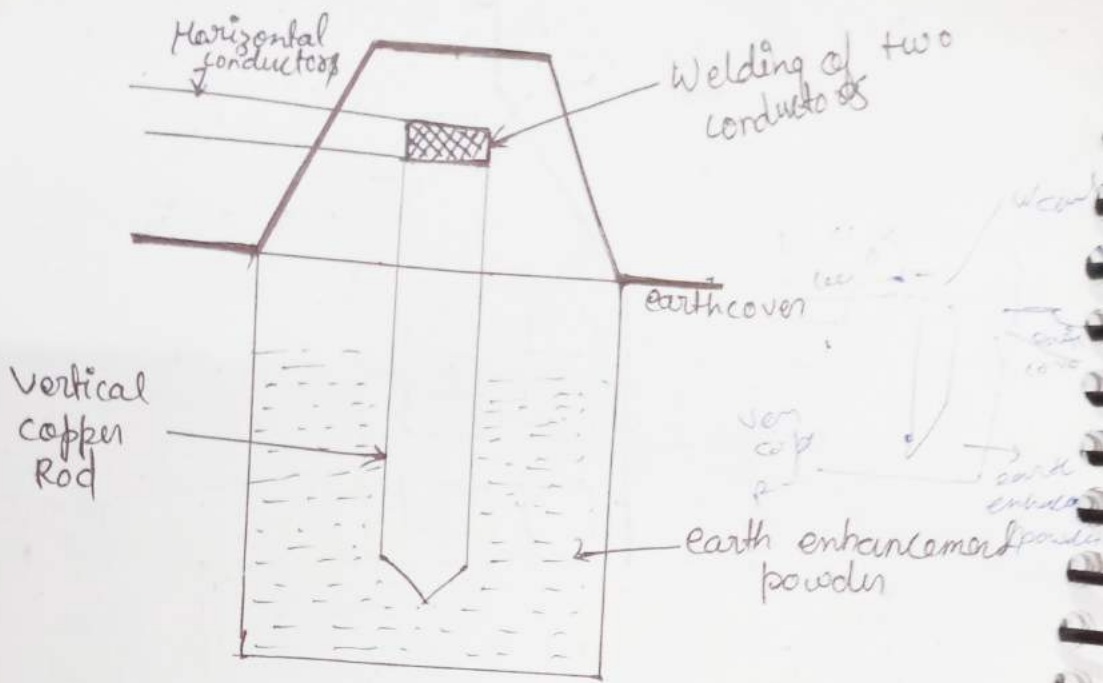 Horizontal
conductors
Welding of two
conductors
earthcover
Vertical
copper
Rod
earth enhancement
powder